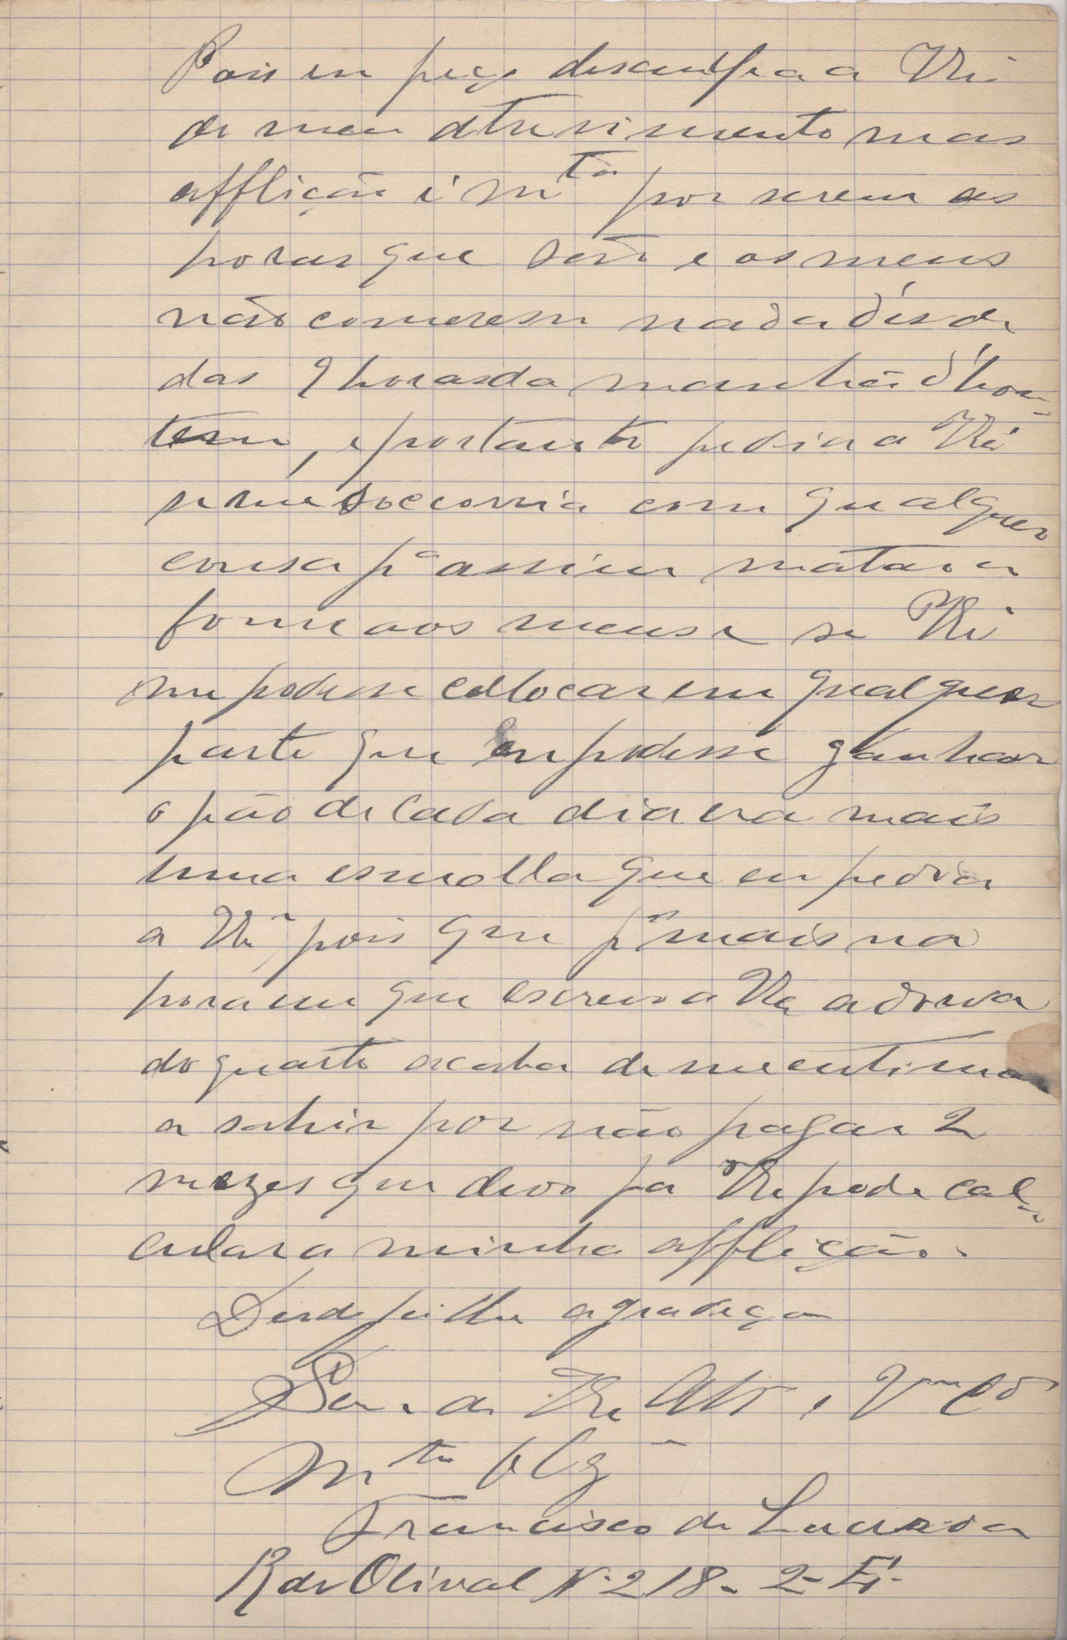 Pois eu peço desculpa a VEx.ª
do meu atrevimento mas
afflição é m.ta por serem as
horas que são e os meus
não comerem nada désde
das 9 horas da manhã d'hon-
tem, e portanto pedia a VEx.ª
se me soccorria com qualquer
cousa p.ª assim matar a
fome aos meus e se VEx.ª
me podesse collocar em qualquer
parte que eu podesse ganhar
o pão de cada dia era mais
uma esmolla que eu pedia
a VEx.ª pois que p.ª mais na
hora em que escrevo a VEx.ª a dona
do quarto acaba de me entimar
a sahir por não pagar 2
mezes que devo ja VEx.ª pode cal-
cular a minha afflição.
Desde já lhe agradeço
Sou de VEx.ª Att.º e V.or C.do
M.to Obg.
Francisco de Lacerda
R do Olival N.º 218- 2- E.